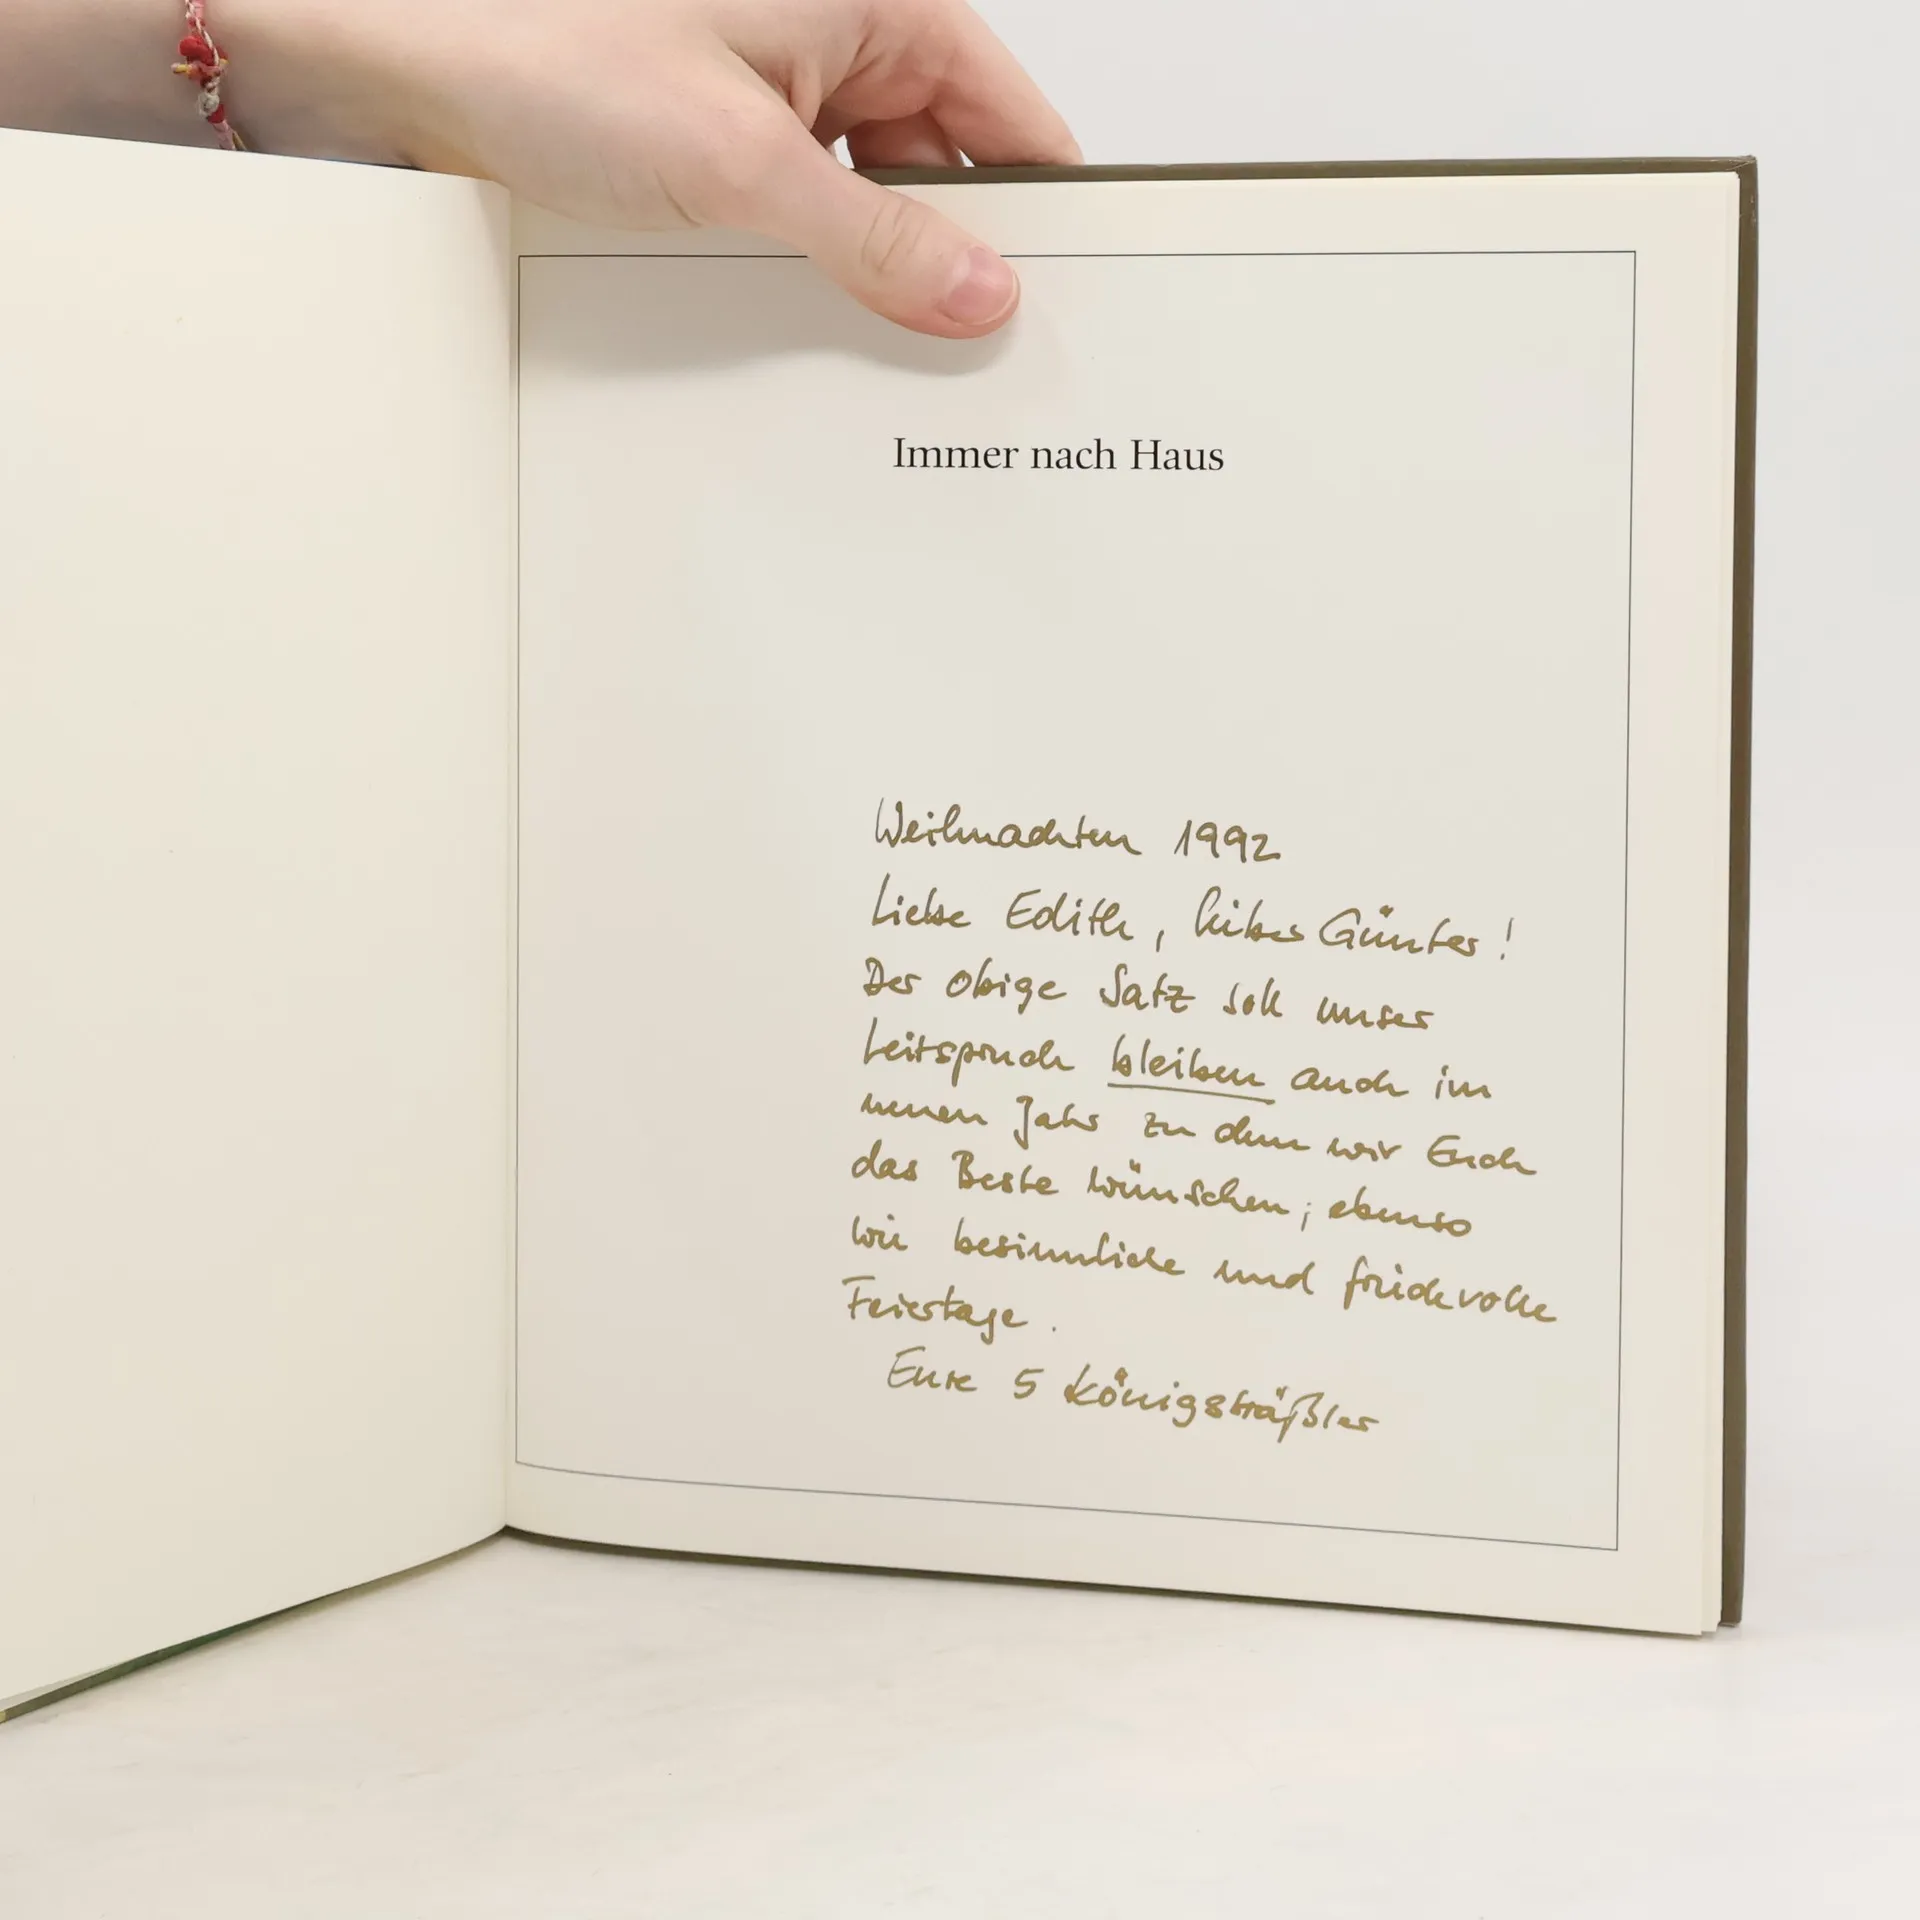 Immer nach Haus
Weihnachten 1992
Liebe Edith, lieber Günter!
Der obige Satz soll unser
Leitspruch bleiben auch im
neuen Jahr zu dem wir Euch
das Beste wünschen; ebenso
wie besinnliche und friedevolle
Feiertage.
Eure 5 Königsträßler